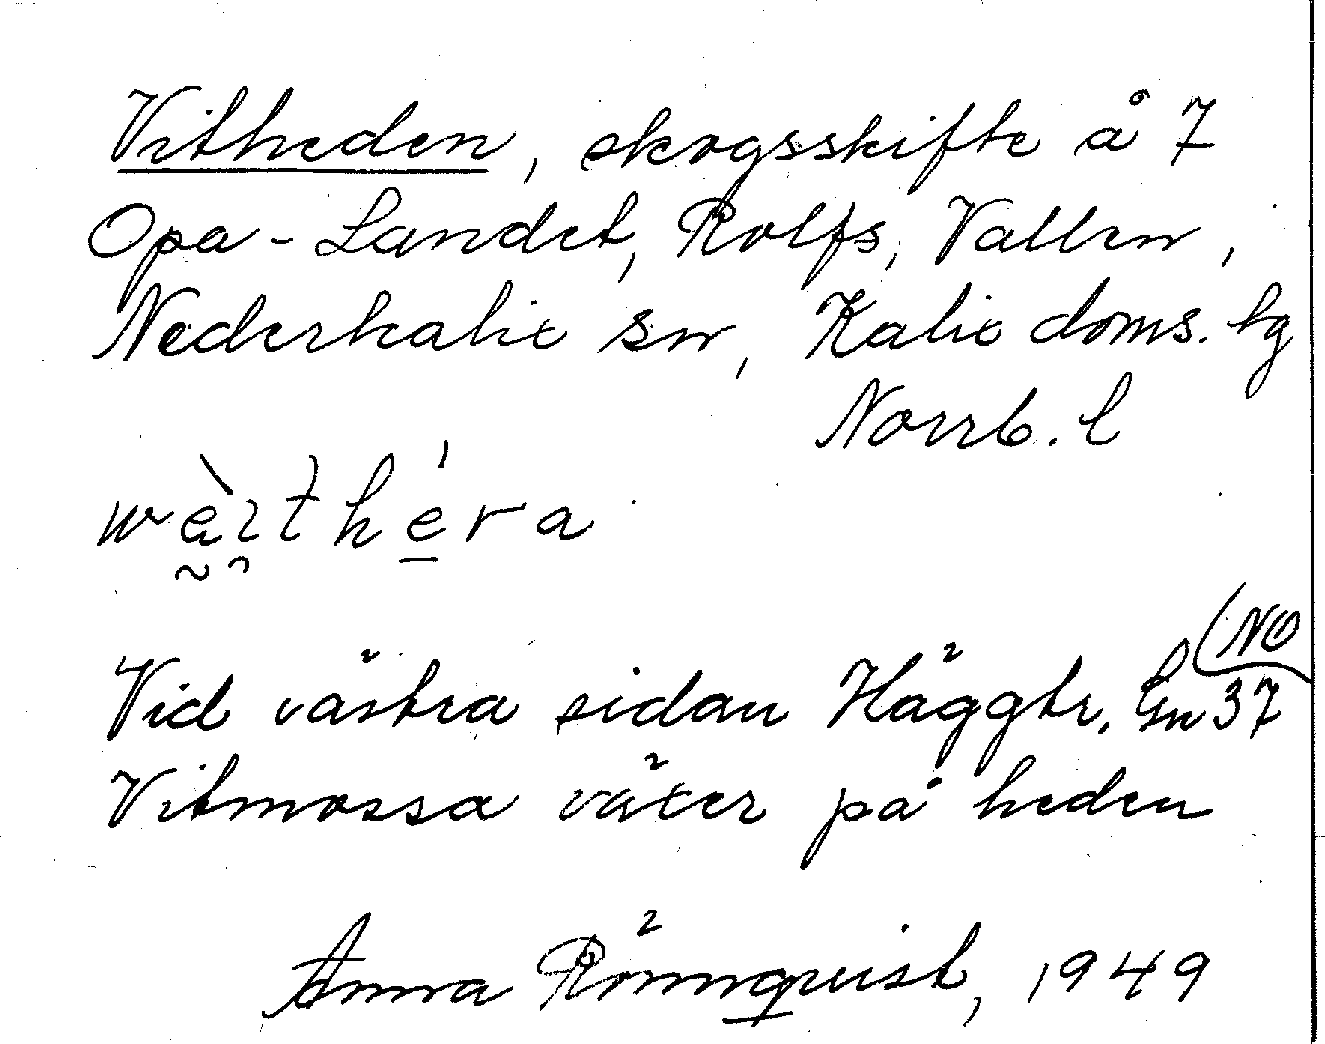 Vitheden, skogsskifte å 7
Opa-Landet, Rolfs, Vallen,
Nederkalix sn, Kalix doms. lg
Norrb. l
wèithéra
(NO
Vid västra sidan Häggtr. Gn 37
Vitmossa växer på heden
Anna Rönnqvist, 1949